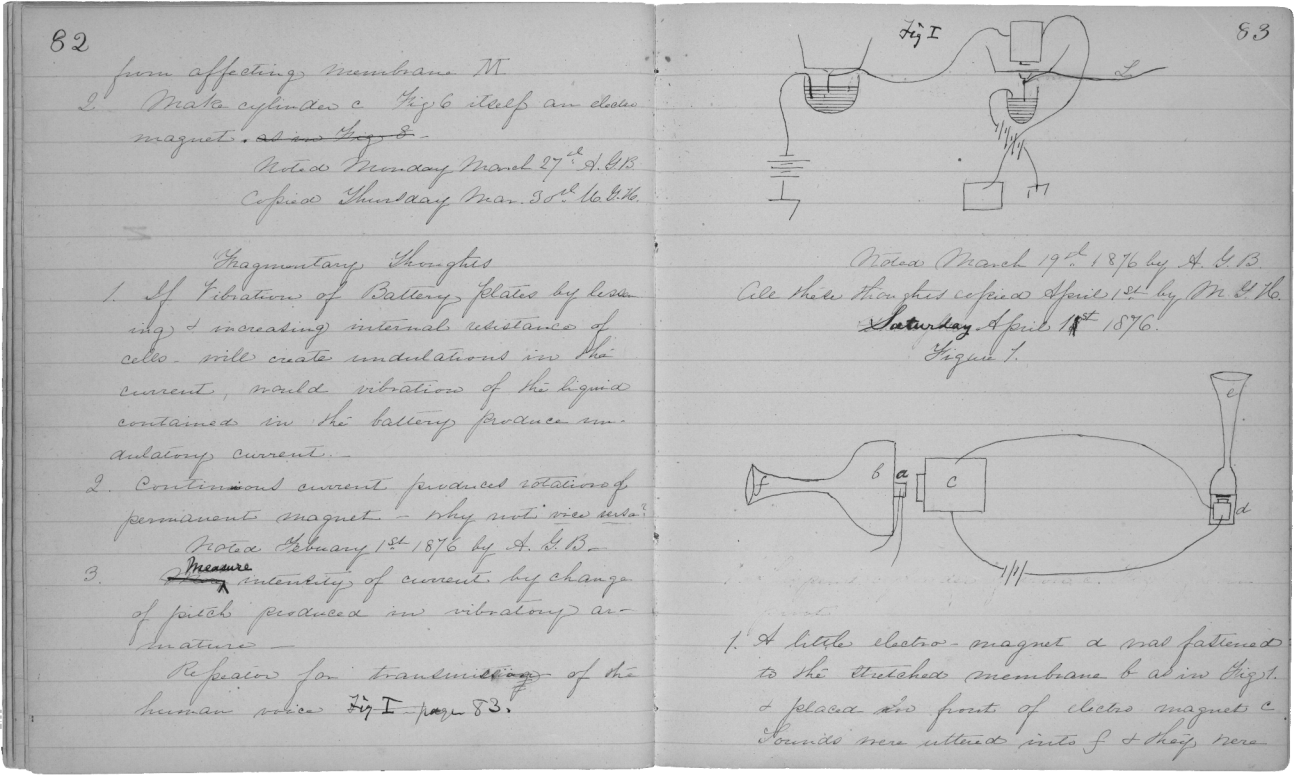 82
from affecting membrane M
2 Make cylinder c Fig 6 itself an electro
magnet. as in Fig 8 -
Noted Monday March 27th A.G.B
Copied Thursday Mar. 30th M.G.H.
Fragmentary Thoughts
1. If Vibration of Battery plates by lessen
ing & increasing internal resistance of
cells - will create undulations in the
current, would vibration of the liquid
contained in the battery produce un-
dulatory current. -
2. Continuous current produces rotation of
permanent magnet - why not vice versa?
Noted Febuary 1st 1876 by A. G. B. -
Measure
3. intensity of current by change
of pitch produced in vibratory ar-
mature -
Repeator for transmission of the
human voice Fig I - page 83.
83
Fig I
L
Noted March 19th 1876 by A. G. B.
All these thoughts copied April 1st by M. G. H.
Saturday April 1st 1876.
Figure 1.
e
f b a c
d
1. A little electro-magnet a was fastened
to the stretched membrane b as in Fig 1.
& placed in front of electro magnet c
Sounds were uttered into f & they were